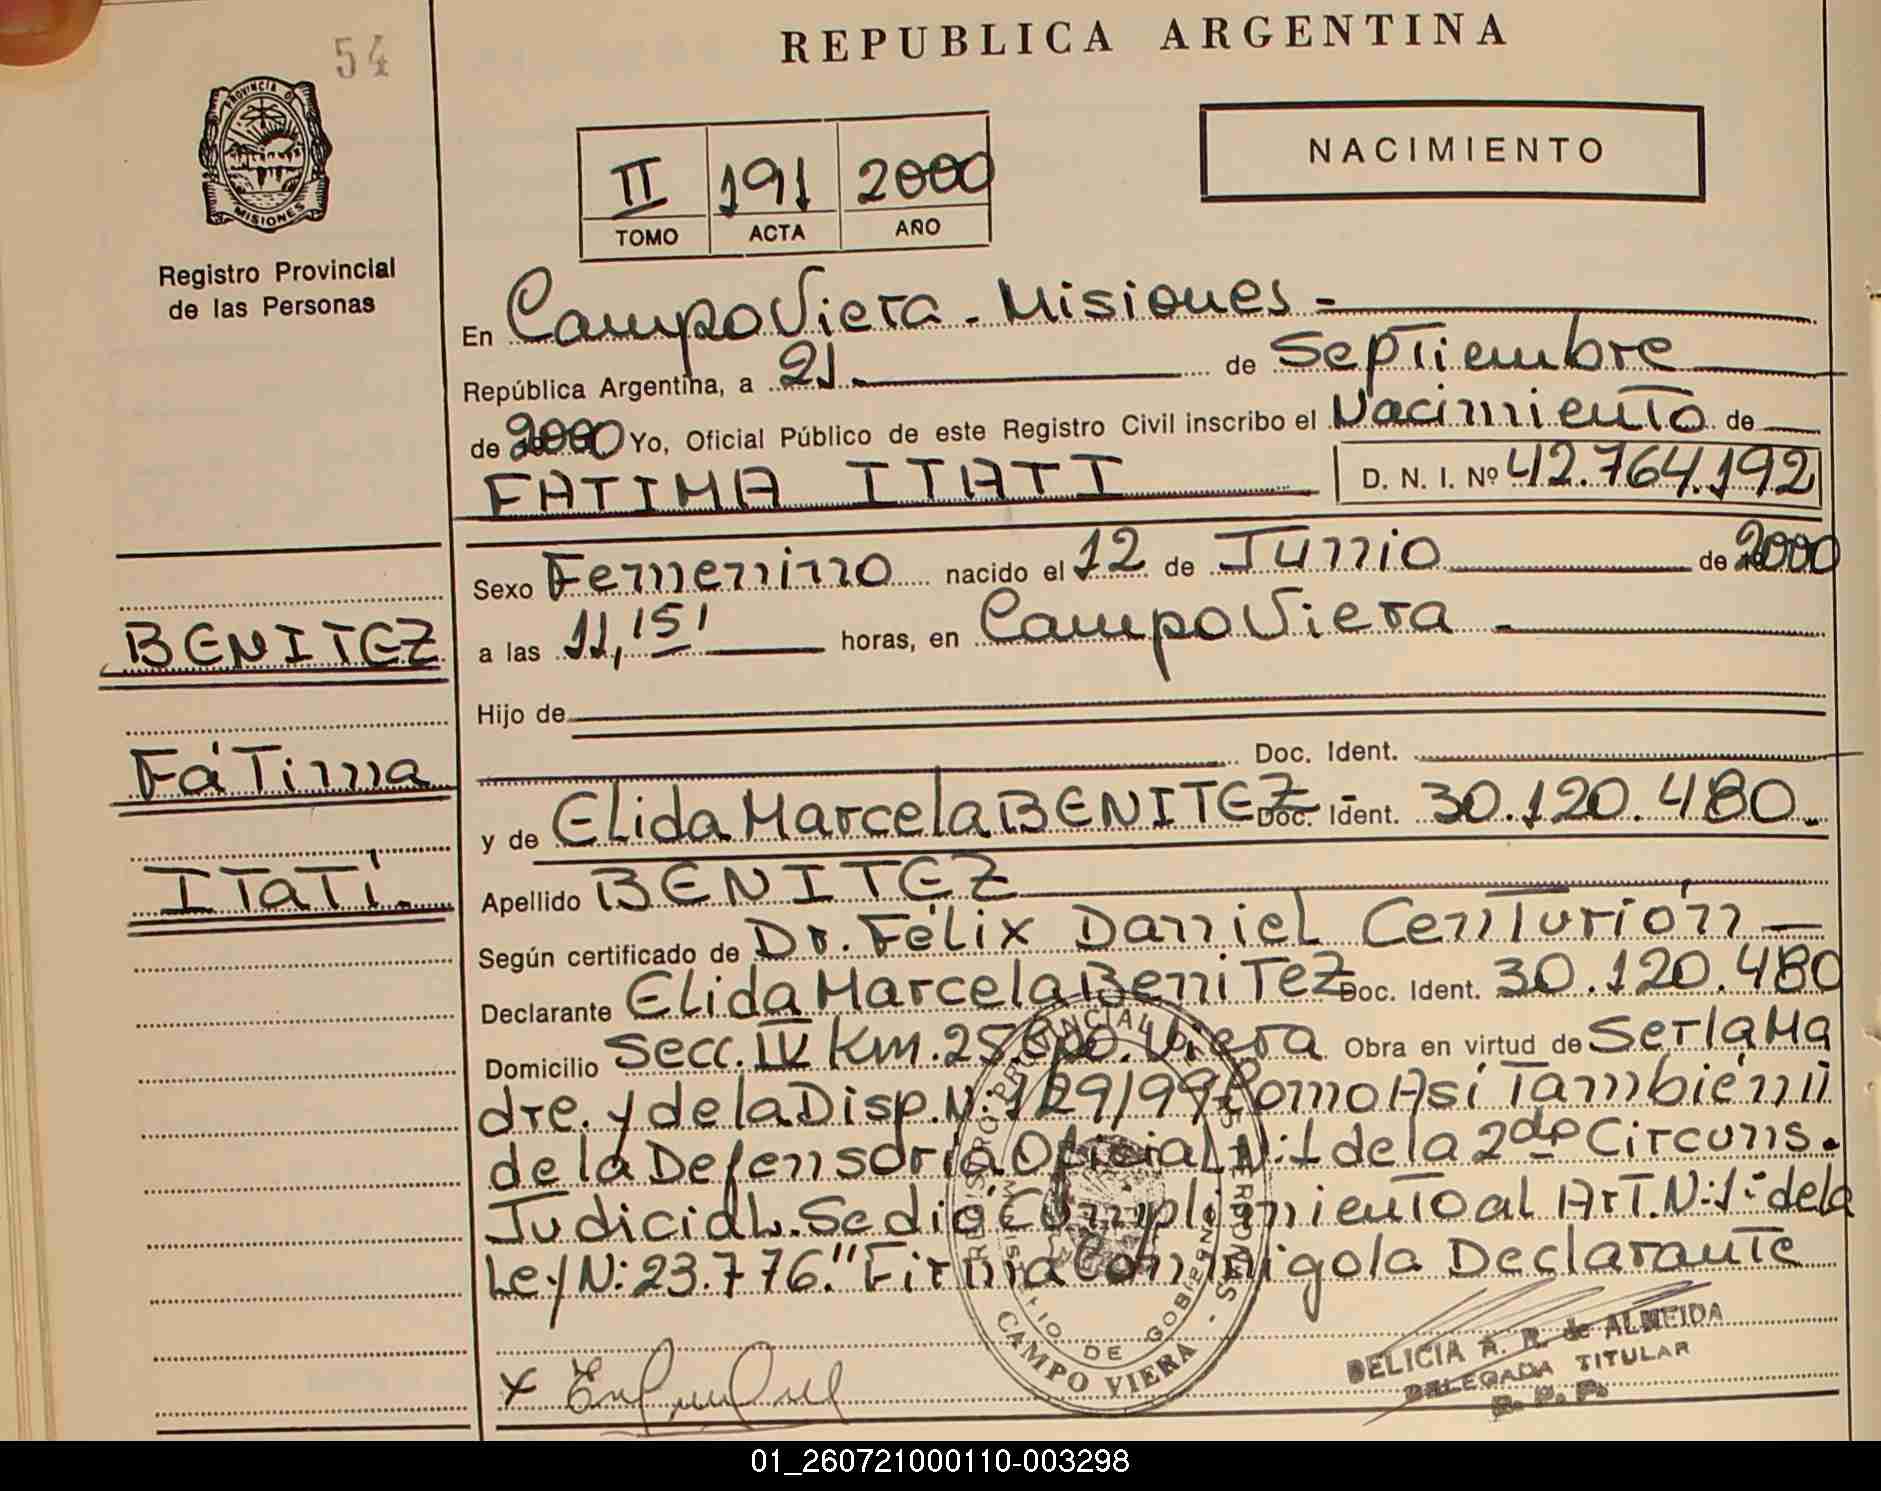 54
REPUBLICA ARGENTINA
PROVINCIA DE
MISIONES
Registro Provincial
de las Personas
II 191 2000
TOMO ACTA AÑO
NACIMIENTO
En Campo Viera - Misiones -
República Argentina, a 21 de Septiembre
de 2000 Yo, Oficial Público de este Registro Civil inscribo el Nacimiento de
FATIMA ITATI D. N. I. Nº 42.764.192
Sexo Femenino nacido el 12 de Junio de 2000
a las 11,15' horas, en Campo Viera -
Hijo de
Doc. Ident.
y de Elida Marcela BENITEZ - Doc. Ident. 30.120.480.
Apellido BENITEZ
Según certificado de Dr. Félix Daniel Centurión -
Declarante Elida Marcela Benitez Doc. Ident. 30.120.480
Domicilio Secc. IV Km. 25. Cpo. Viera Obra en virtud de Ser la Ma
dre. y de la Disp. N: 129/99 Como Así También
de la Defensoría Oficial N: 1 de la 2da Circuns.
Judicial. Se dió Cumplimiento al Art. N: 1: de la
Ley N: 23.776." Firma Conmigo la Declarante
BENITEZ
Fátima
Itatí.
REGISTRO PROVINCIAL DE LAS PERSONAS
MINISTERIO DE GOBIERNO
CAMPO VIERA
DELICIA A. R. de ALMEIDA
DELEGADA TITULAR
R. P. P.
01_260721000110-003298